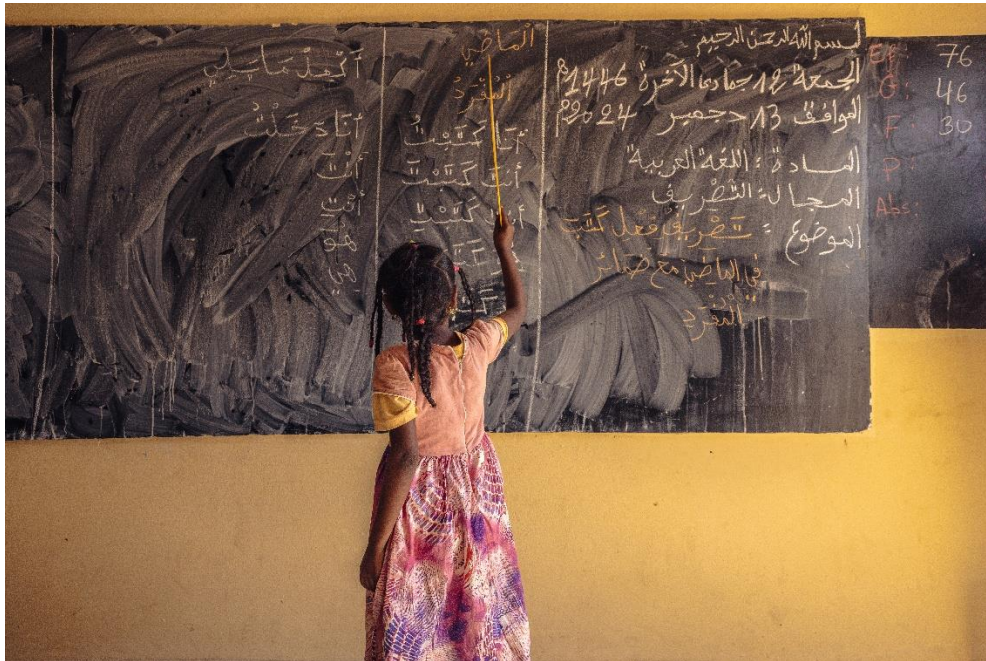 بسم الله الرحمن الرحيم
الجمعة 12 جمادى الآخرة 1446م
الموافق 13 دجمبر 2024م
المادة : اللغة العربية
المجال : التصريف
الموضوع : تَصْرِيفُ فِعْل كَتَبَ
في الماضي مع ضمائر
المفرد
المَاضِي
المُفْرَدُ
أَنَا كَتَبْتُ
أَنْتَ كَتَبْتَ
أَنْتِ كَتَبْتِ
أَكْمِلْ مَا يَلِي
أَنَا دَخَلْتُ
أَنْتَ
أَنْتِ
هُوَ
هِيَ
Eff: 76
G: 46
F: 30
P:
Abs: